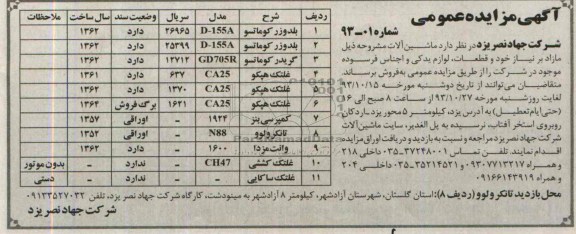 آگهی مزایده عمومی
شماره ۰۱-۹۳
شرکت جهاد نصر یزد در نظر دارد ماشین آلات مشروحه ذیل
مازاد بر نیاز خود و قطعات، لوازم یدکی و اجناس فرسوده
موجود در شرکت را از طریق مزایده عمومی به فروش برساند.
متقاضیان می‌توانند از تاریخ دوشنبه مورخه ۹۳/۱۰/۱۵
لغایت روز شنبه مورخه ۹۳/۱۰/۲۷ از ساعت ۸ صبح الی ۱۶
(حتی ایام تعطیل) به آدرس یزد، کیلومتر ۵ محور یزد ـ اردکان
روبروی استخر آفتاب، نرسیده به پل الغدیر، سایت ماشین آلات
شرکت جهاد نصر یزد مراجعه و نسبت به بازدید و دریافت اوراق مزایده
اقدام نمایند. تلفن تماس ۳۷۲۴۸۰۰۱-۰۳۵ داخلی ۲۱۸
و همراه ۰۹۳۰۷۷۱۳۲۱۷ و ۳۵۲۱۴۵۲۱-۰۳۵ داخلی ۲۰۴
و همراه ۰۹۱۶۶۱۴۳۹۱۹
ردیف شرح مدل سریال وضعیت سند سال ساخت ملاحظات
۱ بلدوزر کوماتسو D-155A ۲۶۹۶۵ دارد ۱۳۶۲
۲ بلدوزر کوماتسو D-155A ۲۵۳۹۹ دارد ۱۳۶۲
۳ گریدر کوماتسو GD705R ۱۲۷۱۲ دارد ۱۳۶۲
۴ غلتک هپکو CA25 ۶۳۷ دارد ۱۳۶۱
۵ غلتک هپکو CA25 ۱۳۷۰ دارد ۱۳۶۲
۶ غلتک هپکو CA25 ۱۶۲۱ برگ فروش ۱۳۶۲
۷ کمپرسی بنز ۱۹۲۴ – اوراقی ۱۳۵۷
۸ تانکر ولوو N88 – اوراقی ۱۳۵۲
۹ وانت مزدا ۱۶۰۰ – دارد ۱۳۶۲
۱۰ غلتک کششی CH47 – ندارد – بدون موتور
۱۱ غلتک ساکایی – – ندارد – دستی
محل بازدید تانکر ولوو (ردیف ۸): استان گلستان، شهرستان آزادشهر، کیلومتر ۸ آزادشهر به مینودشت، کارگاه شرکت جهاد نصر یزد، تلفن ۰۹۱۳۳۵۲۷۰۳۲
شرکت جهاد نصر یزد